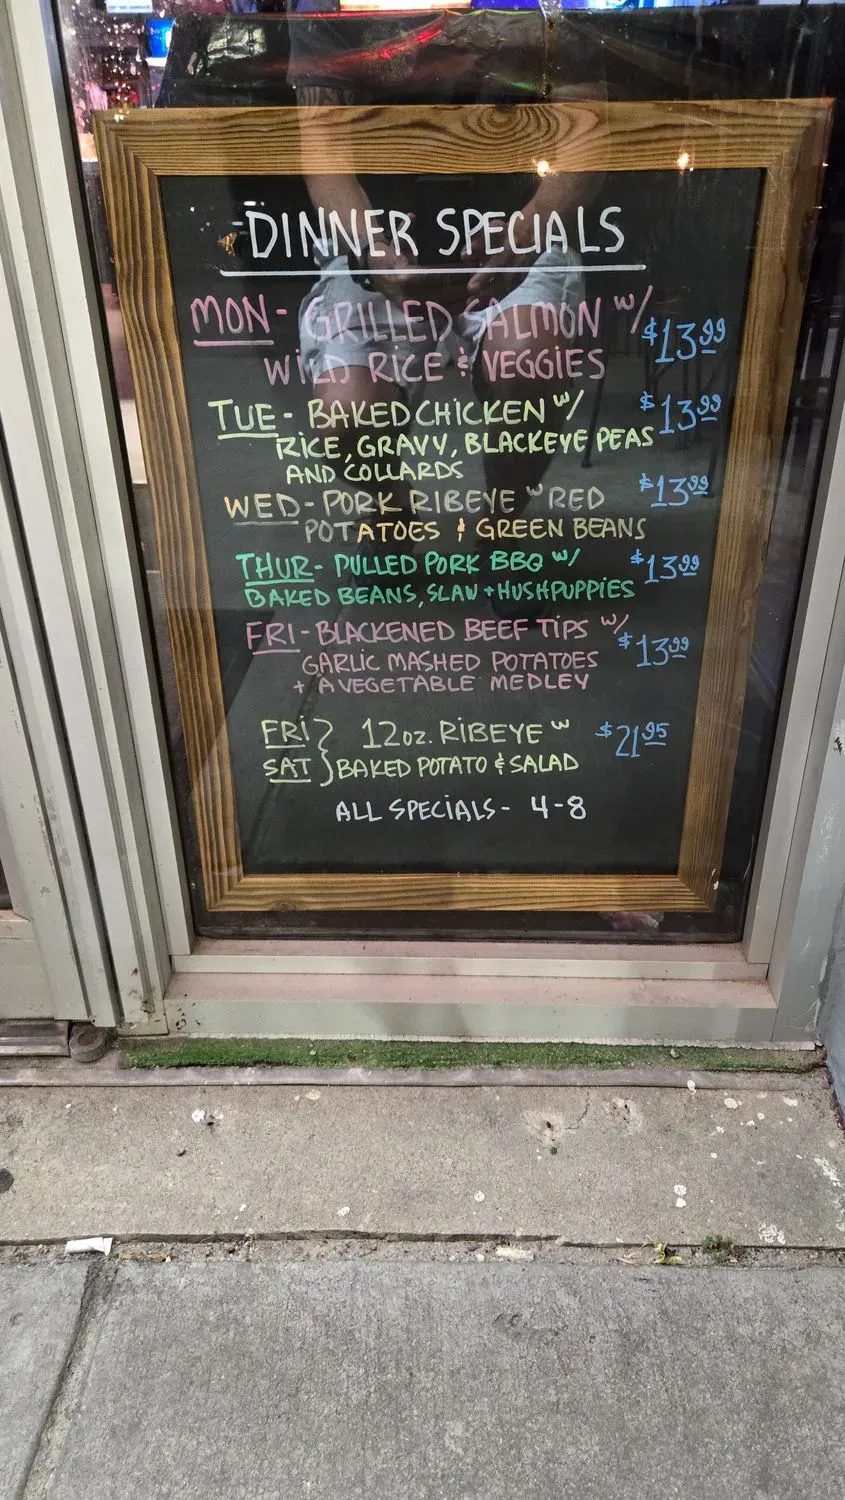 DINNER SPECIALS
MON - GRILLED SALMON W/
WILD RICE & VEGGIES $13.99
TUE - BAKED CHICKEN W/ $13.99
RICE, GRAVY, BLACKEYE PEAS
AND COLLARDS
WED - PORK RIBEYE W RED $13.99
POTATOES & GREEN BEANS
THUR - PULLED PORK BBQ W/ $13.99
BAKED BEANS, SLAW + HUSHPUPPIES
FRI - BLACKENED BEEF TIPS W/ $13.99
GARLIC MASHED POTATOES
+ A VEGETABLE MEDLEY
FRI } 12oz. RIBEYE W $21.95
SAT } BAKED POTATO & SALAD
ALL SPECIALS - 4-8